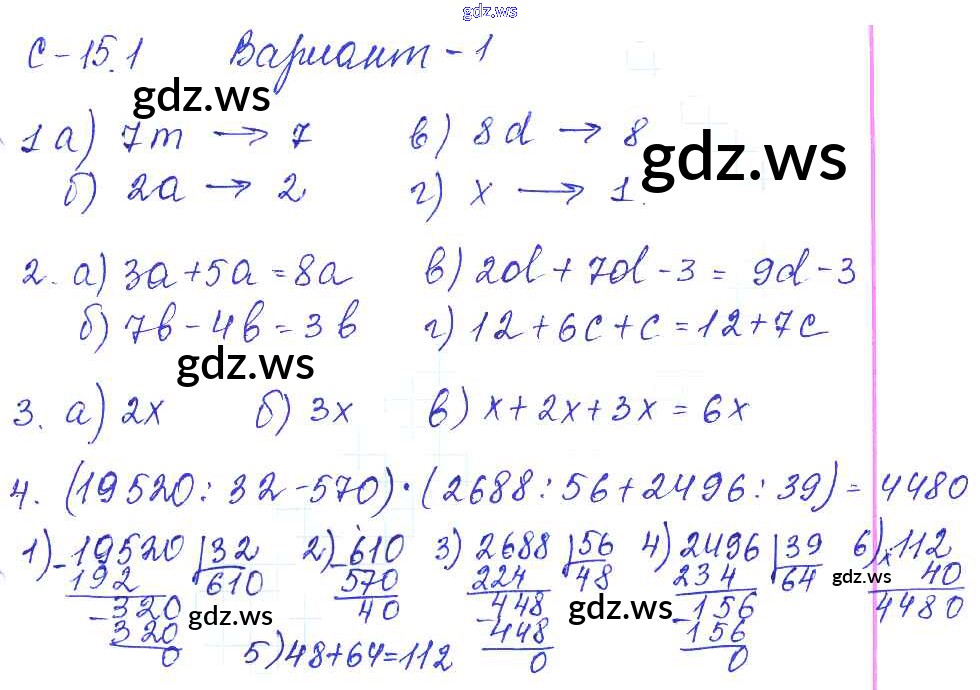 gdz.ws
С-15.1 Вариант-1
gdz.ws
1 а) 7m → 7 в) 8d → 8
gdz.ws
б) 2a → 2 г) x → 1.
2. а) 3a+5a=8a в) 2d+7d-3=9d-3
б) 7b-4b=3b г) 12+6c+c=12+7c
gdz.ws
3. а) 2x б) 3x в) x+2x+3x=6x
4. (19520:32-570)·(2688:56+2496:39)=4480
1) -19520 32 2) -610 3) 2688 56 4) 2496 39 6) x112
192 610 570 224 48 234 64 gdz.ws 40
-320 40 -448 gdz.ws -156 4480
320 gdz.ws -448 -156
0 5) 48+64=112 0 0